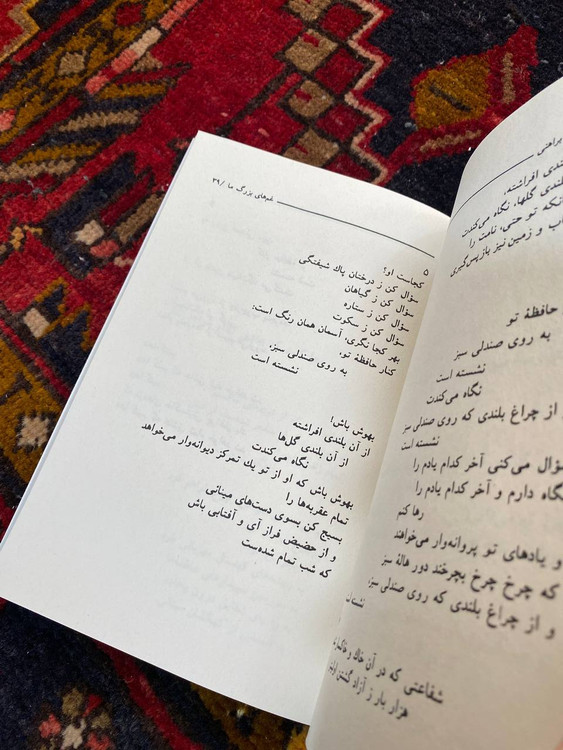 براهنی
افراشته،
بلندی گلها، نگاه می‌کندت
تو حتی، نامت را
و زمین نیز بازپس‌گیری
حافظهٔ تو
به روی صندلی سبز
نشسته است
نگاه می‌کندت
و از چراغ بلندی که روی صندلی سبز
نشسته است
می‌کنی آخر کدام یادم را
دارم و آخر کدام یادم را
رها کنم
و یادهای تو پروانه‌وار می‌خواهند
که چرخ چرخ بچرخند دور هالهٔ سبز
و از چراغ بلندی که روی صندلی سبز،
شفاعتی که در آن خاك و
هزار بار ز آزاد گشتن
غمهای بزرگ ما / ۳۹
۵
کجاست او؟
سؤال کن ز درختان پاك شیفتگی
سؤال کن ز گیاهان
سؤال کن ز ستاره
سؤال کن ز سکوت
بهر کجا نگری، آسمان همان رنگ است:
کنار حافظهٔ تو،
به روی صندلی سبز،
نشسته است
بهوش باش!
از آن بلندی افراشته
از آن بلندی گل‌ها
نگاه می‌کندت
بهوش باش که او از تو يك تمرکز دیوانه‌وار می‌خواهد
تمام عقربه‌ها را
بسیج کن بسوی دست‌های مینائی
و از حضیض فراز آی و آفتابی باش
که شب تمام شده‌ست